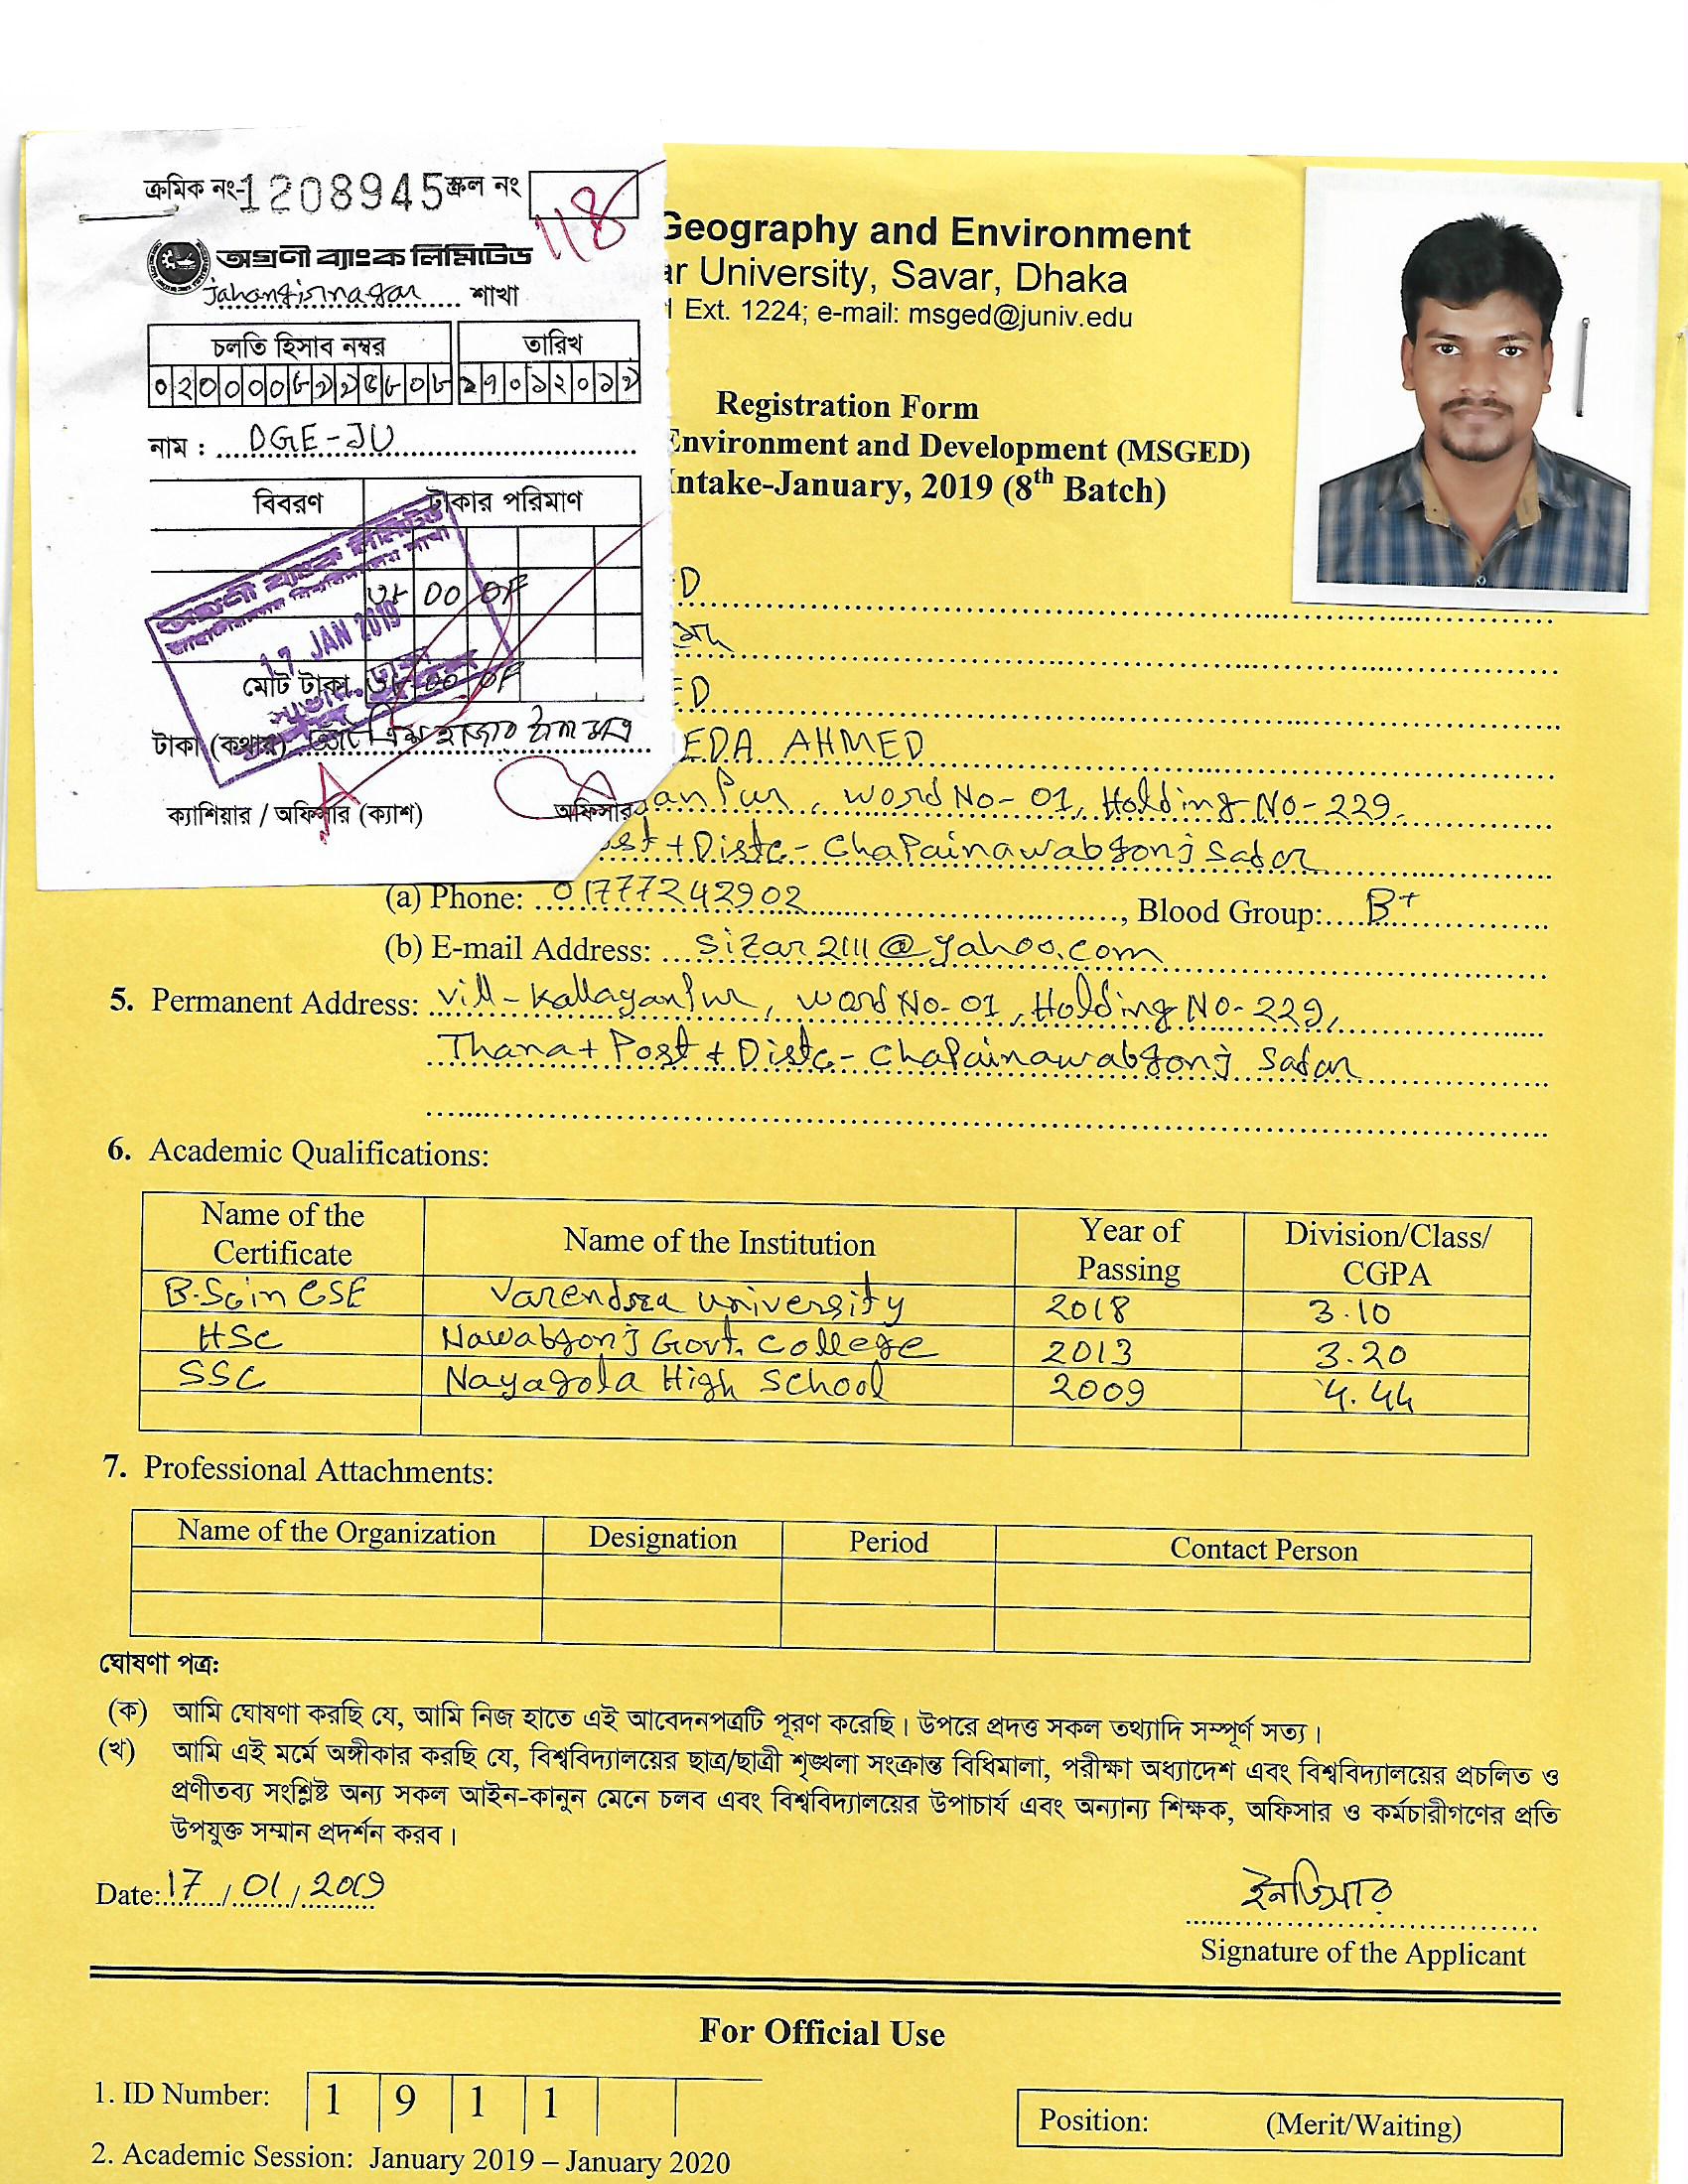 ক্রমিক নং-1208945 স্ক্রল নং
118
অগ্রণী ব্যাংক লিমিটেড
Jahangirnagar শাখা
চলতি হিসাব নম্বর তারিখ
নাম : DGE-JU
বিবরণ টাকার পরিমাণ
17 JAN 2019
মোট টাকা
টাকা (কথায়)
ক্যাশিয়ার / অফিসার (ক্যাশ) অফিসার
Geography and Environment
ar University, Savar, Dhaka
Ext. 1224; e-mail: msged@juniv.edu
Registration Form
Environment and Development (MSGED)
Intake-January, 2019 (8th Batch)
D
ED
EDA AHMED
anpur, word No- 01, Holding No- 229.
ost + Distc- Chapainawabgonj Sadar
(a) Phone: 01777242902, Blood Group: B+
(b) E-mail Address: sizar2111@yahoo.com
5. Permanent Address: Vill- Kallayanpur, word No- 01, Holding No- 229,
Thana + Post + Distc- Chapainawabgonj Sadar
6. Academic Qualifications:
Name of the Certificate Name of the Institution Year of Passing Division/Class/ CGPA
B.Sc in CSE Varendra university 2018 3.10
HSC Nawabgonj Govt. College 2013 3.20
SSC Nayagola High School 2009 4.44
7. Professional Attachments:
Name of the Organization Designation Period Contact Person
ঘোষণা পত্র:
(ক) আমি ঘোষণা করছি যে, আমি নিজ হাতে এই আবেদনপত্রটি পূরণ করেছি। উপরে প্রদত্ত সকল তথ্যাদি সম্পূর্ণ সত্য।
(খ) আমি এই মর্মে অঙ্গীকার করছি যে, বিশ্ববিদ্যালয়ের ছাত্র/ছাত্রী শৃঙ্খলা সংক্রান্ত বিধিমালা, পরীক্ষা অধ্যাদেশ এবং বিশ্ববিদ্যালয়ের প্রচলিত ও
প্রণীতব্য সংশ্লিষ্ট অন্য সকল আইন-কানুন মেনে চলব এবং বিশ্ববিদ্যালয়ের উপাচার্য এবং অন্যান্য শিক্ষক, অফিসার ও কর্মচারীগণের প্রতি
উপযুক্ত সম্মান প্রদর্শন করব।
Date: 17/01/2019
ইনতিসার
Signature of the Applicant
For Official Use
1. ID Number: 1 9 1 1
Position: (Merit/Waiting)
2. Academic Session: January 2019 – January 2020